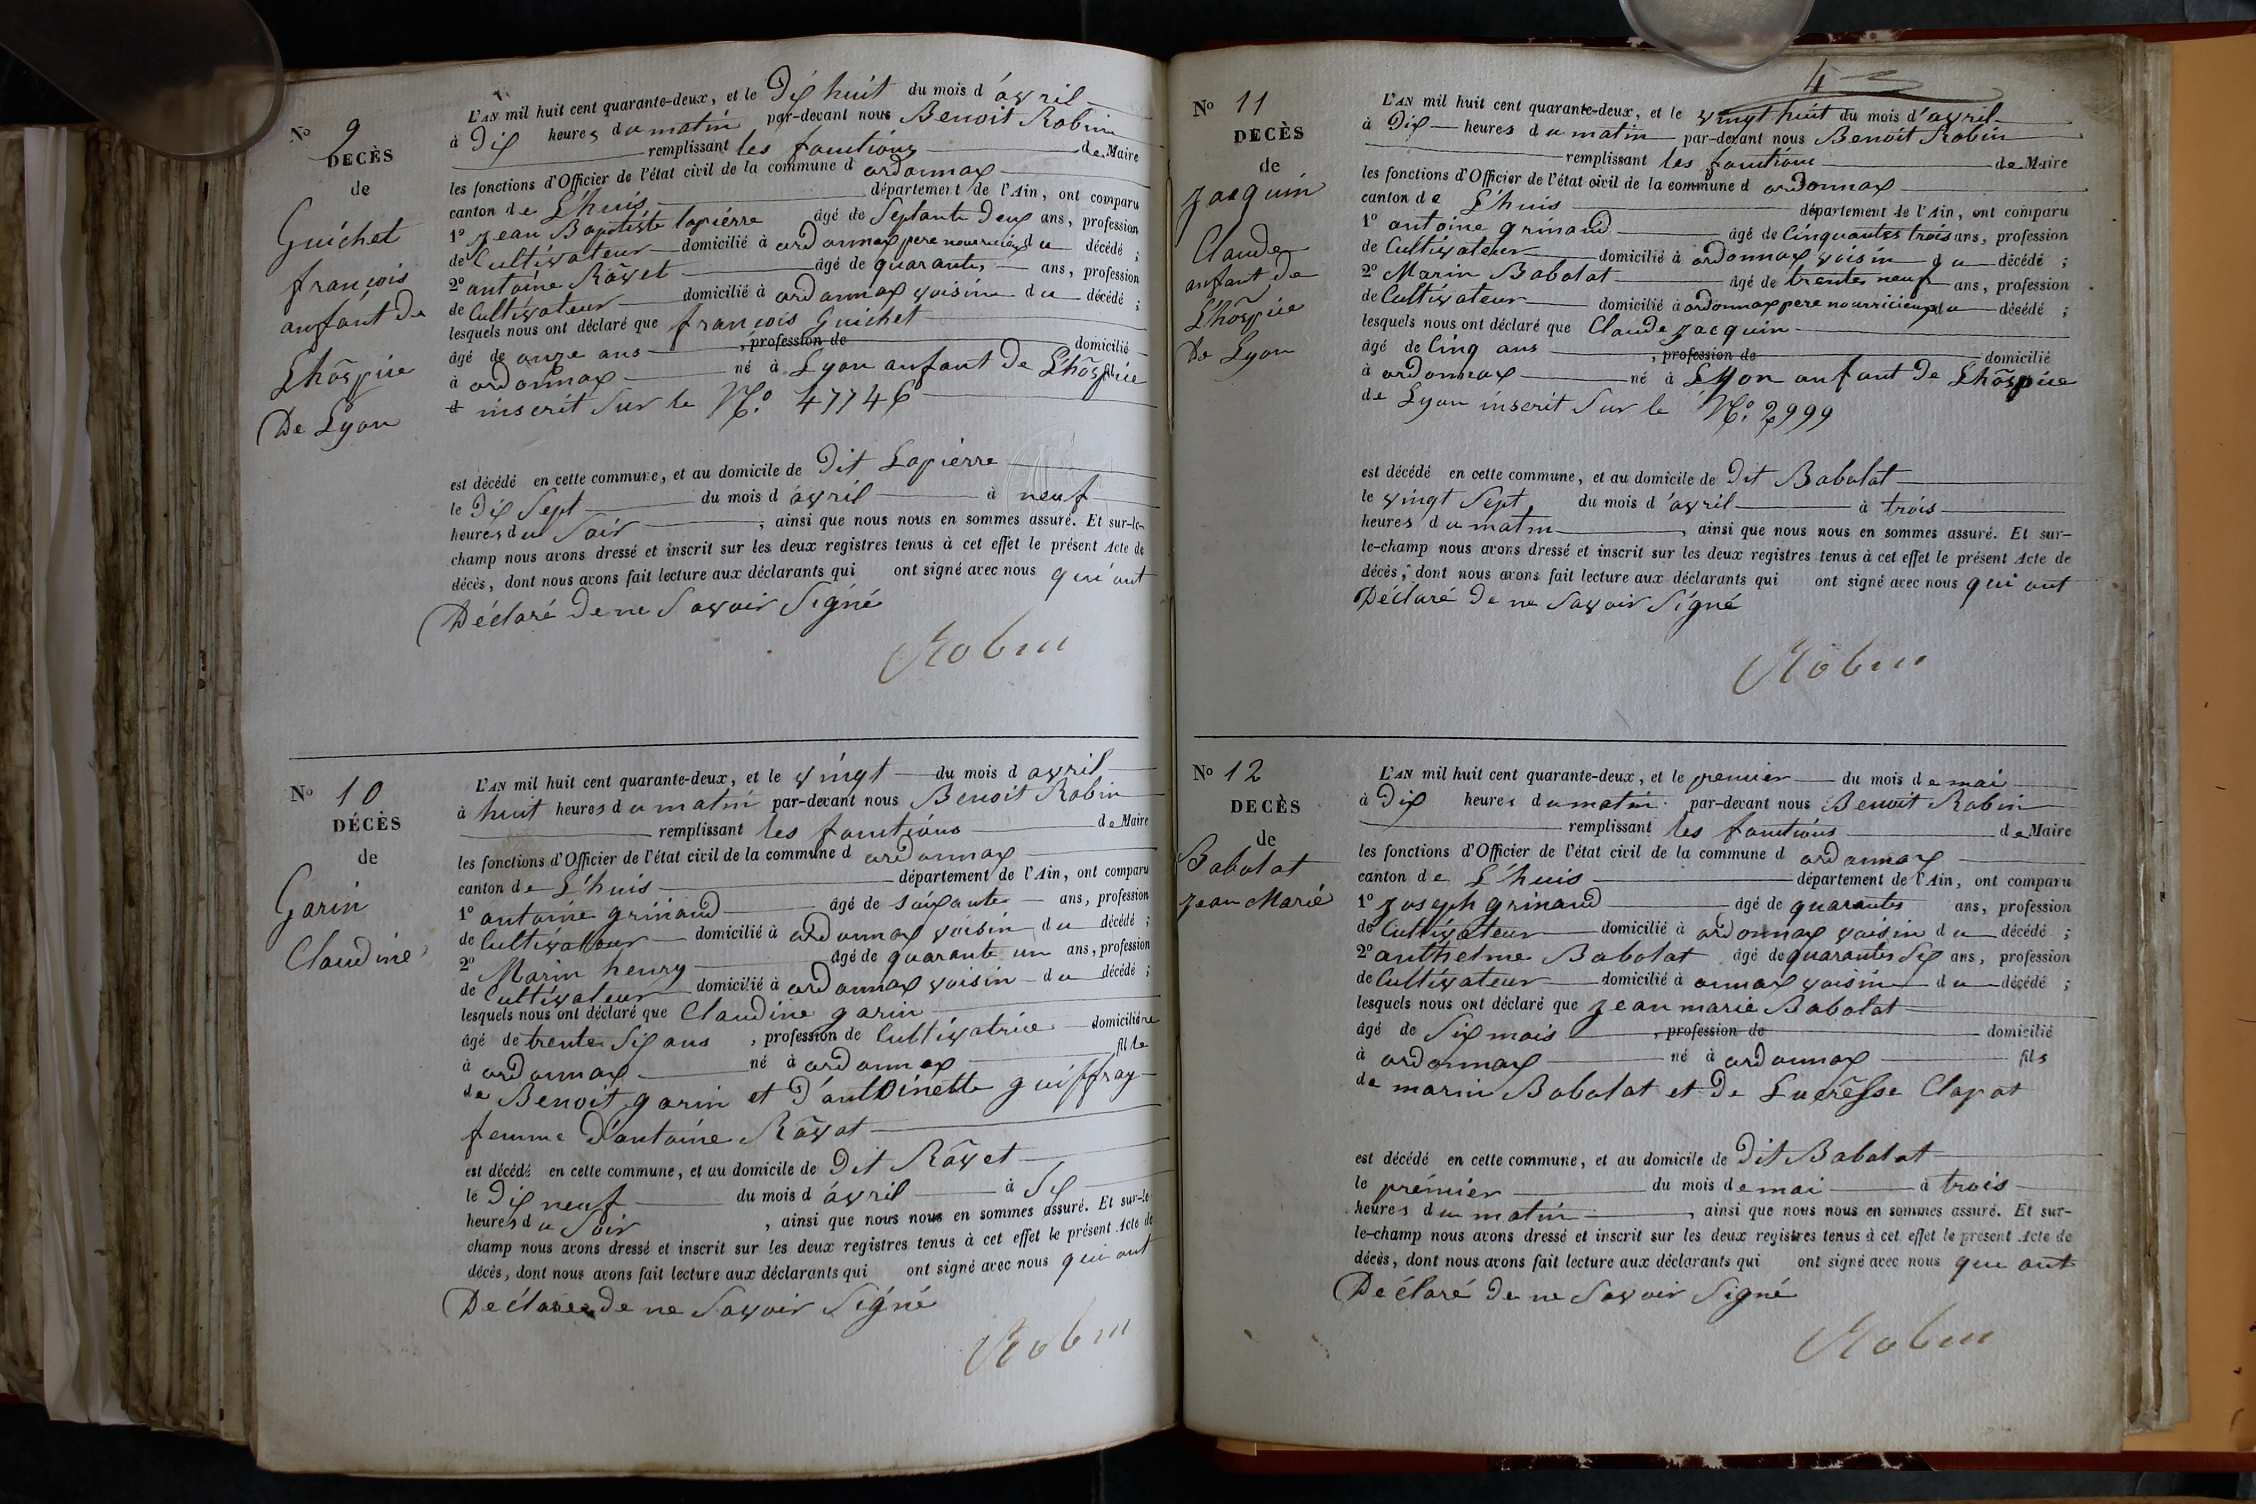 N° 9
DECÈS
de
Guichet
françois
anfant de
Lhôspice
De Lyon
L'AN mil huit cent quarante-deux, et le Dix huit du mois d'avril
à Dix heures du matin par-devant nous Benoit Robin
remplissant les fonctions de Maire
les fonctions d'Officier de l'état civil de la commune d ordonnax
canton de L'huis département de l'Ain, ont comparu
1° Jean Baptiste lapierre âgé de Septante Deux ans, profession
de Cultivateur domicilié à ordonnax pere nourricier du décédé ;
2° antoine Ravet âgé de quarante ans, profession
de Cultivateur domicilié à ordonnax voisin du décédé ;
lesquels nous ont déclaré que françois Guichet
âgé de onze ans , profession de domicilié
à ordonnax né à Lyon anfant de Lhôspice
inscrit Sur le N.° 47746
est décédé en cette commune, et au domicile de Dit Lapierre
le Dix Sept du mois d avril à neuf
heures du Soir ; ainsi que nous nous en sommes assuré. Et sur-le-
champ nous avons dressé et inscrit sur les deux registres tenus à cet effet le présent Acte de
décès, dont nous avons fait lecture aux déclarants qui ont signé avec nous qui ont
Déclaré De ne Savoir Signé
Robin
N° 10
DÉCÈS
de
Garin
Claudine
L'AN mil huit cent quarante-deux, et le vingt du mois d avril
à huit heures du matin par-devant nous Benoit Robin
remplissant les fonctions de Maire
les fonctions d'Officier de l'état civil de la commune d ordonnax
canton de L'huis département de l'Ain, ont comparu
1° antoine grinand âgé de soixante ans, profession
de Cultivateur domicilié à ordonnax voisin du décédé ;
2° Marin henry âgé de quarante un ans, profession
de Cultivateur domicilié à ordonnax voisin du décédé ;
lesquels nous ont déclaré que Claudine garin
âgé de trente Six ans , profession de Cultivatrice domiciliée
à ordonnax né à ordonnax fille
de Benoit garin et D'antoinette guiffray
femme D'antoine Ravat
est décédé en cette commune, et au domicile de Dit Ravet
le Dix neuf du mois d avril à Six
heures du Soir , ainsi que nous nous en sommes assuré. Et sur-le-
champ nous avons dressé et inscrit sur les deux registres tenus à cet effet le présent Acte de
décès, dont nous avons fait lecture aux déclarants qui ont signé avec nous qui ont
Déclaré De ne Savoir Signé
Robin
4
N° 11
DECÈS
de
Jacquin
Claude
anfant de
Lhôspice
De Lyon
L'AN mil huit cent quarante-deux, et le vingt huit du mois d'avril
à Dix heures du matin par-devant nous Benoit Robin
remplissant les fonctions de Maire
les fonctions d'Officier de l'état civil de la commune d ordonnax
canton de L'huis département de l'Ain, ont comparu
1° antoine grinand âgé de Cinquantes trois ans, profession
de Cultivateur domicilié à ordonnax voisin du décédé ;
2° Marin Babolat âgé de trentes neuf ans, profession
de Cultivateur domicilié à ordonnax pere nourricier du décédé ;
lesquels nous ont déclaré que Claude Jacquin
âgé de Cinq ans , profession de domicilié
à ordonnax né à Lyon anfant de Lhôspice
de Lyon inscrit Sur le N.° 2999
est décédé en cette commune, et au domicile de Dit Babolat
le vingt Sept du mois d'avril à trois
heures du matin , ainsi que nous nous en sommes assuré. Et sur-
le-champ nous avons dressé et inscrit sur les deux registres tenus à cet effet le présent Acte de
décès, dont nous avons fait lecture aux déclarants qui ont signé avec nous qui ont
Déclaré De ne Savoir Signé
Robin
N° 12
DECÈS
de
Babolat
Jean Marie
L'AN mil huit cent quarante-deux, et le premier du mois de mai
à Dix heures du matin par-devant nous Benoit Robin
remplissant les fonctions de Maire
les fonctions d'Officier de l'état civil de la commune d ordonnax
canton de L'huis département de l'Ain, ont comparu
1° Joseph grinand âgé de quarantes ans, profession
de Cultivateur domicilié à ordonnax voisin du décédé ;
2° anthelme Babolat âgé de quarantes Six ans, profession
de Cultivateur domicilié à onnax voisin du décédé ;
lesquels nous ont déclaré que Jean marie Babolat
âgé de Six mois , profession de domicilié
à ordonnax né à ordonnax fils
de marin Babolat et De Lucresse Clapat
est décédé en cette commune, et au domicile de Dit Babolat
le premier du mois de mai à trois
heures du matin , ainsi que nous nous en sommes assuré. Et sur-
le-champ nous avons dressé et inscrit sur les deux registres tenus à cet effet le présent Acte de
décès, dont nous avons fait lecture aux déclarants qui ont signé avec nous qui ont
Déclaré De ne Savoir Signé
Robin